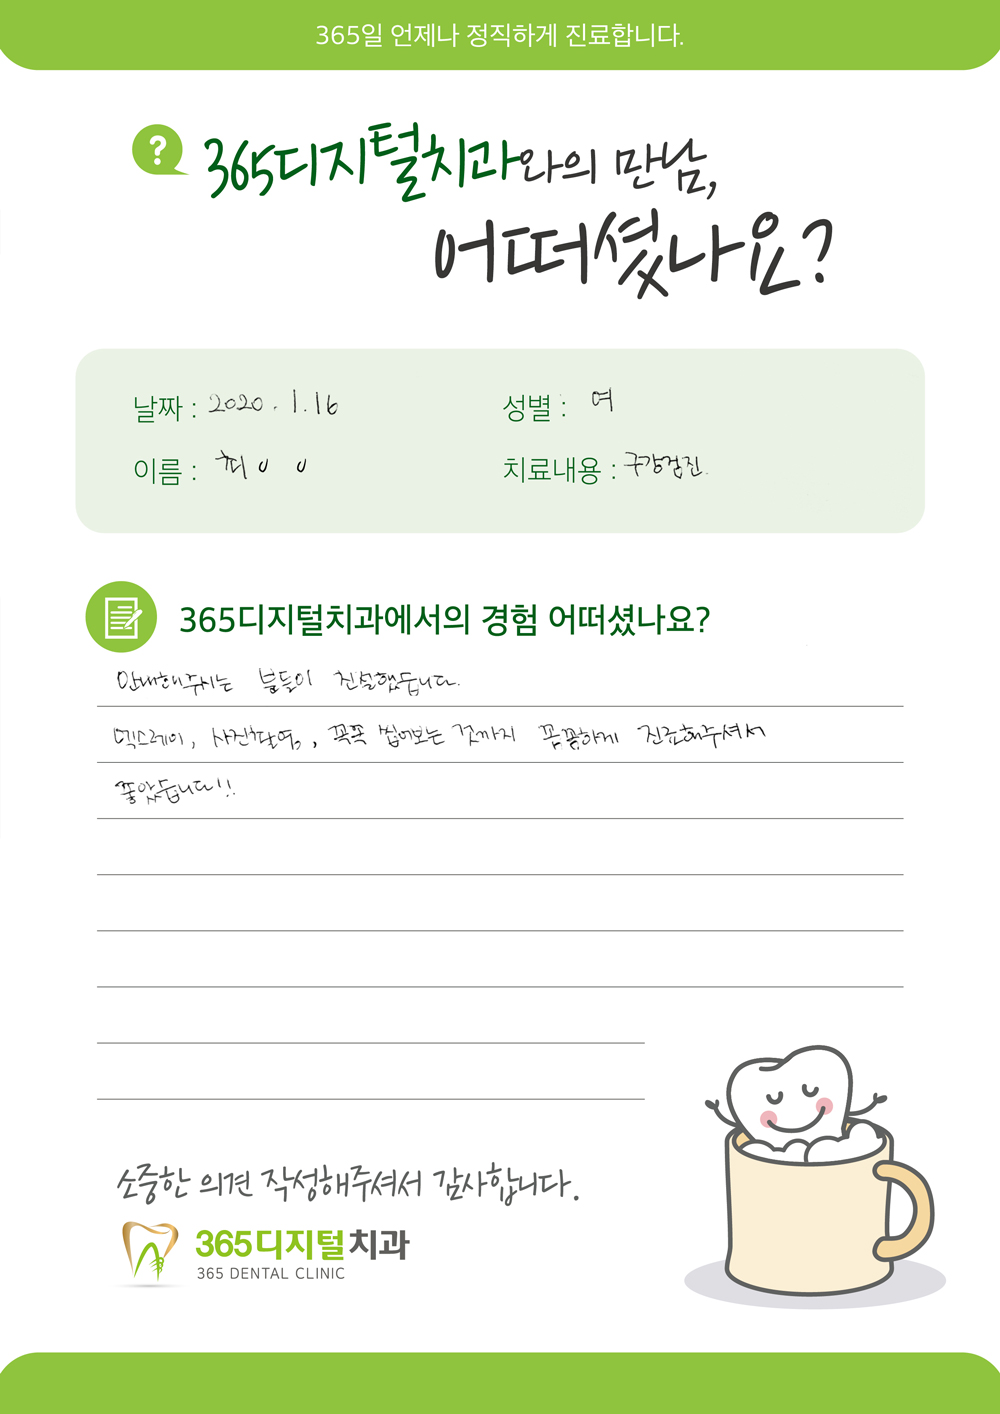 365일 언제나 정직하게 진료합니다.
? 365디지털치과와의 만남,
어떠셨나요?
날짜 : 2020. 1. 16 성별 : 여
이름 : 최ㅇㅇ 치료내용 : 구강검진.
365디지털치과에서의 경험 어떠셨나요?
안내해주시는 분들이 친절했습니다.
엑스레이, 사진촬영, 꼭꼭 씹어보는 것까지 꼼꼼하게 진료해주셔서
좋았습니다!!
소중한 의견 작성해주셔서 감사합니다.
365디지털치과
365 DENTAL CLINIC